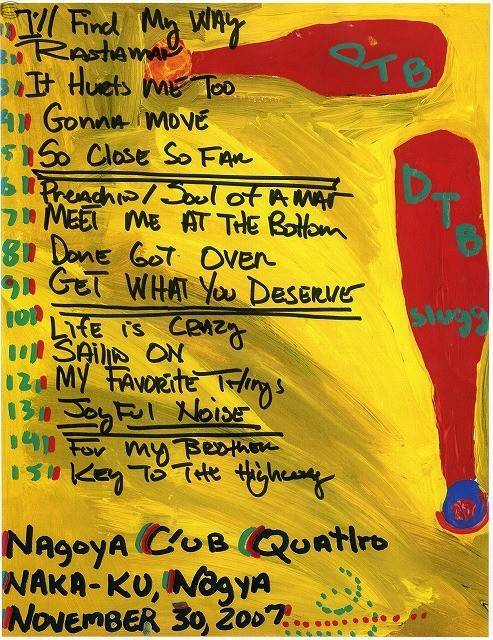 1) I'll Find My WAY
2) RASTAMAN
3) It HURTS ME Too
4) GONNA MOVE
5) SO CLOSE SO FAR
6) Preachin/Soul of A MAN
7) MEET ME AT THE BOTTOM
8) DONE GOT OVER
9) GET WHAT YOU DESERVE
10) LIFE is CRAZY
11) SAILIN ON
12) MY FAVORITE THINgs
13) JOYFUL NOISE
14) For my BROTHER
15) KEY TO THE HIGHWAY
DTB
DTB
slugg
NAgoYA CLUB QUATTRO
NAKA-KU, NAgYA
NOVEMBER 30, 2007